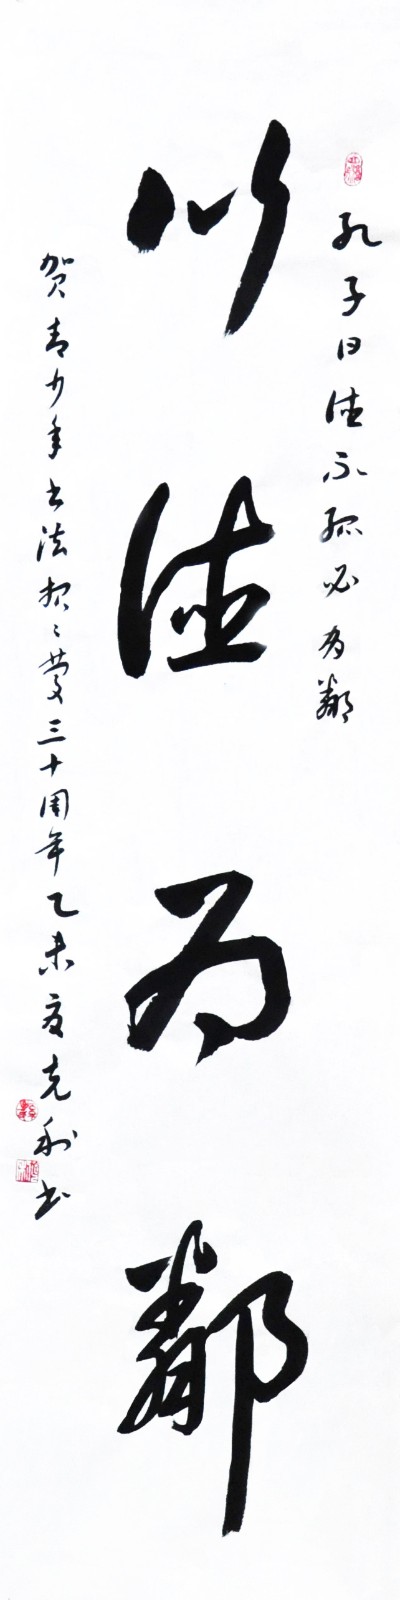 孔子曰德不孤必有鄰
以德为鄰
贺青少年书法报〻慶三十周年乙未夏克利书